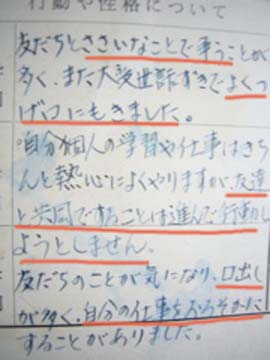 行動や性格について
友だちとささいなことで争うことが
多く、また大変世話ずきでよくつ
げ口にもきました。
自分個人の学習や仕事はきち
んと熱心によくやりますが、友達
と共同ですることは進んで行動し
ようとしません。
友だちのことが気になり、口出し
が多く、自分の仕事をおろそかに
することがありました。